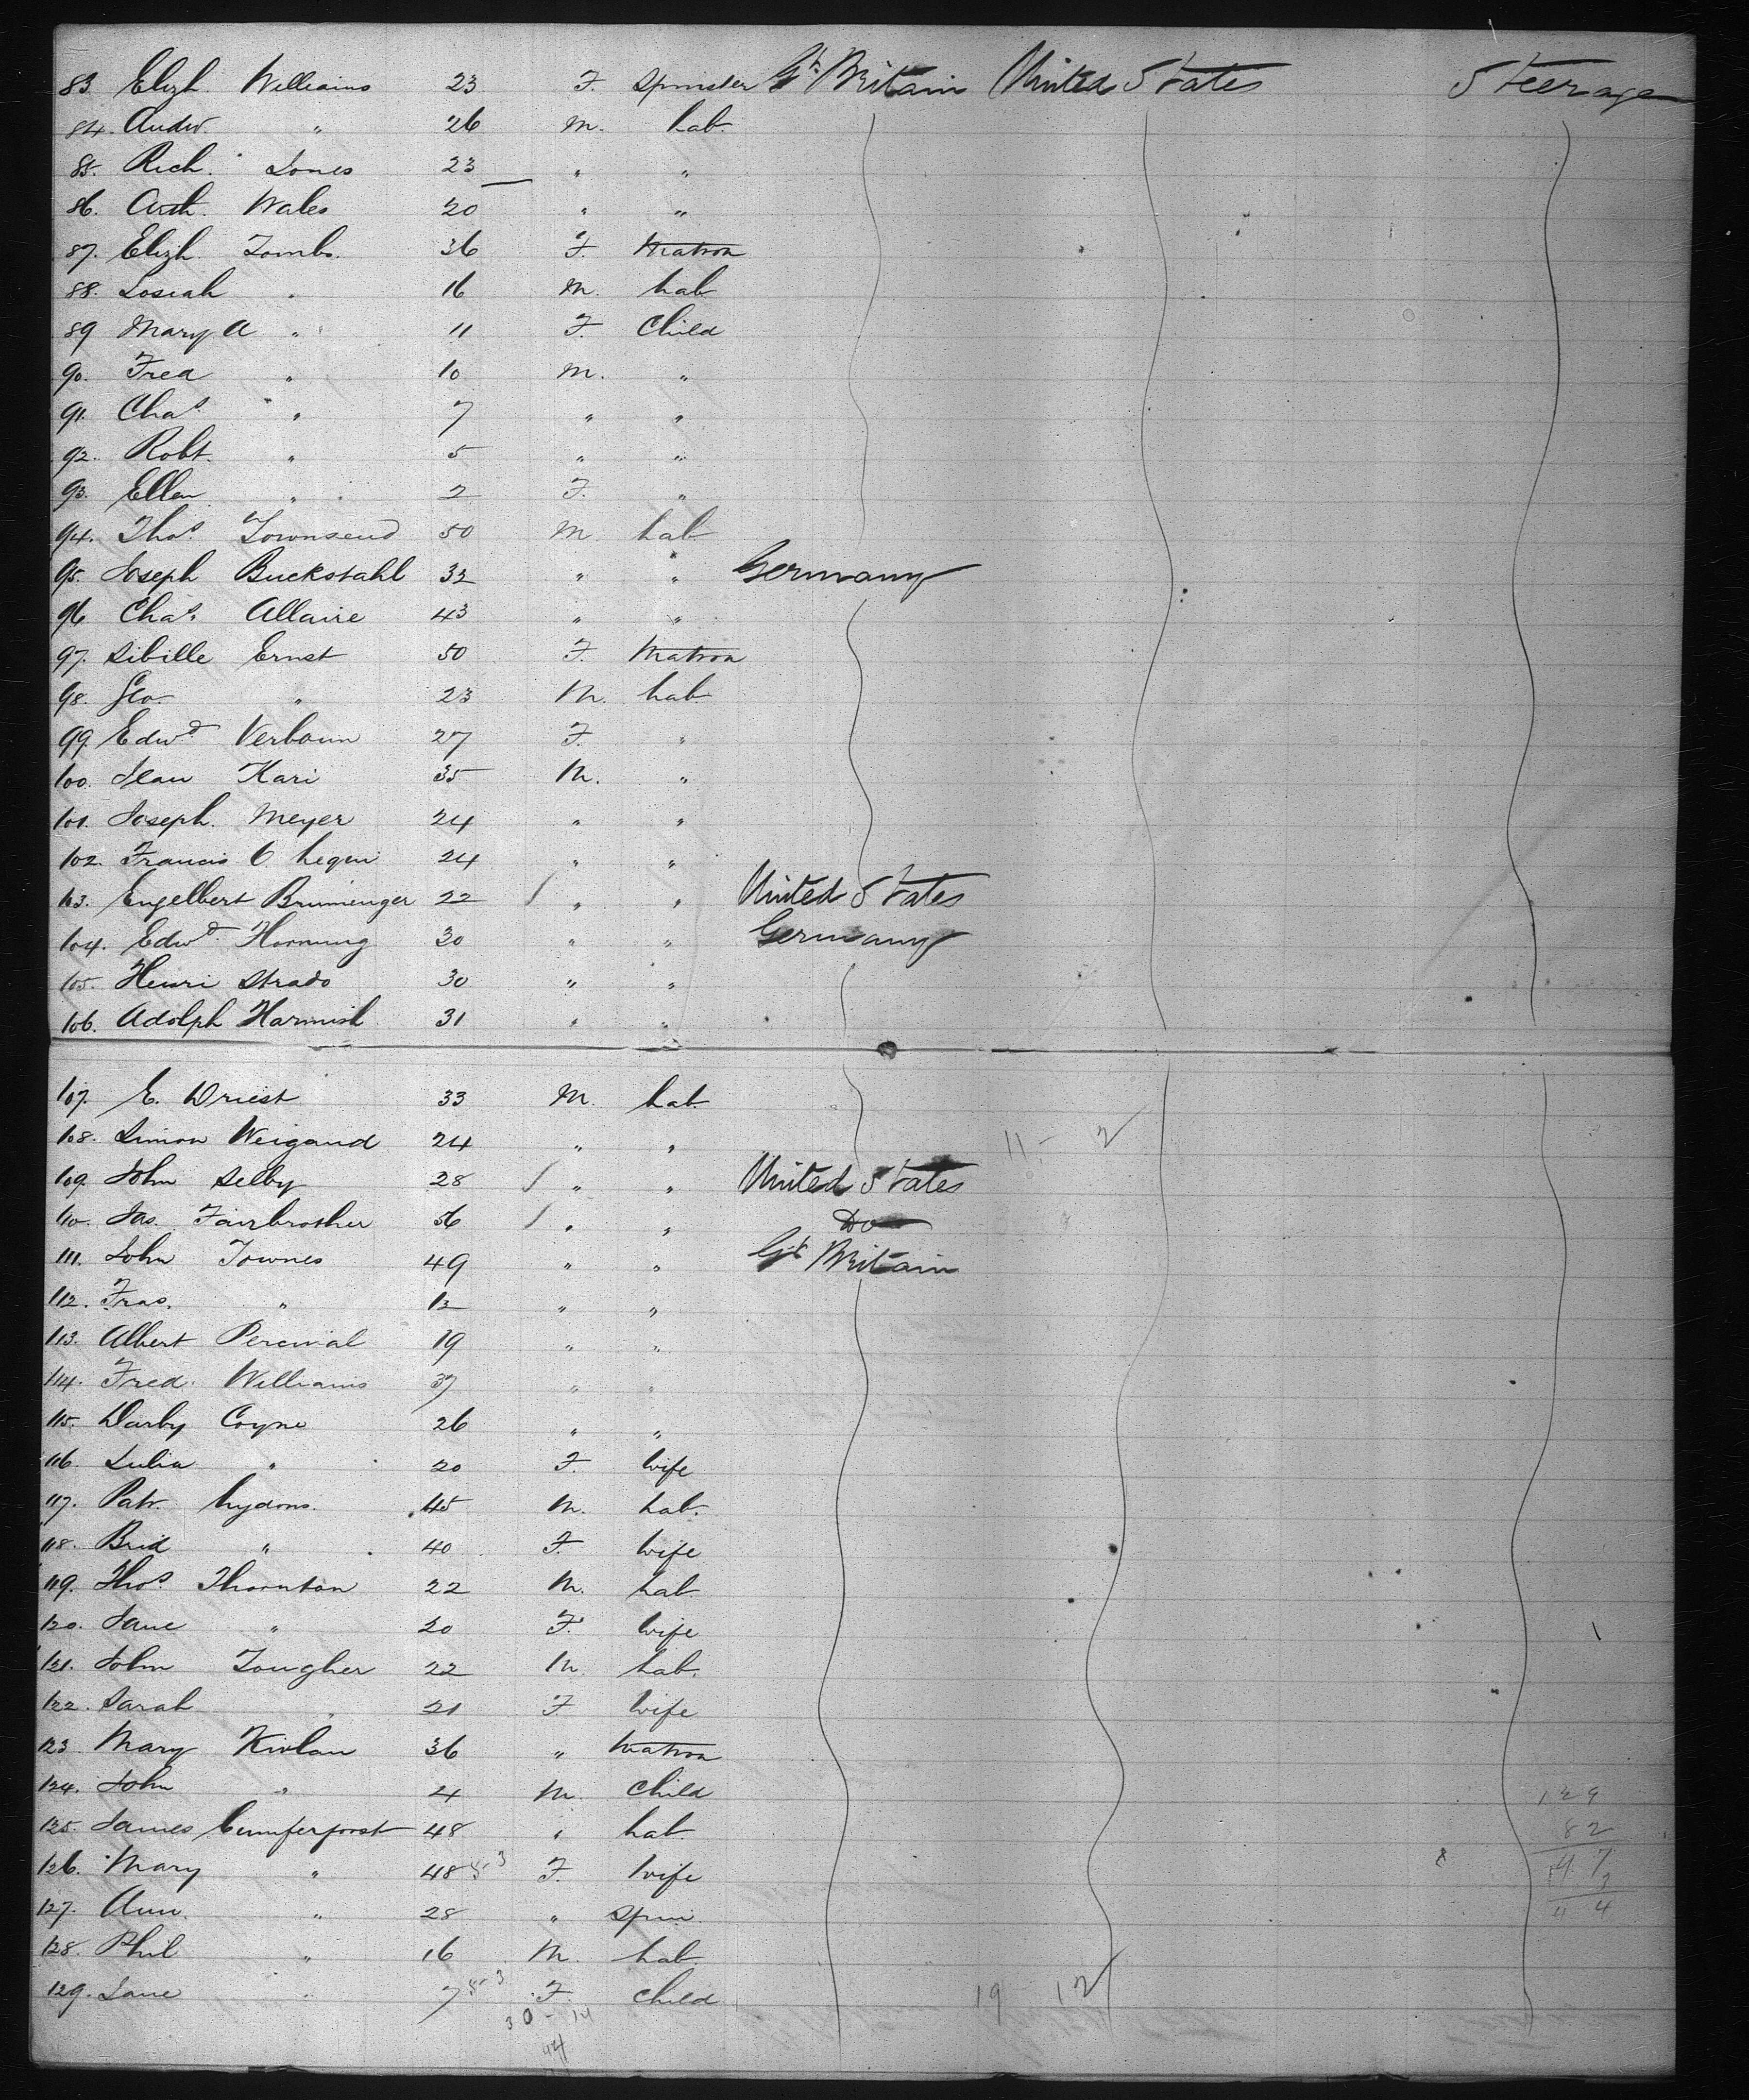 83. Elizh. Williams 23 F. Spinster Gt. Britain United States Steerage
84. Andw. " 26 M. Lab.
85. Rich. Jones 23 " "
86. Arth. Wales 20 " "
87. Elizh. Tombs. 36 F. Matron
88. Josiah " 16 M. Lab
89 Mary A " 11 F. Child
90. Fred " 10 M. "
91. Chas. " 7 " "
92. Robt. " 5 " "
93. Ellen " 2 F. "
94. Thos. Townsend 50 M Lab
95. Joseph Buckstahl 32 " " Germany
96 Chas. Allaire 43 " "
97. Sibille Ernst 50 F. Matron
98. Geo. " 23 M. Lab.
99. Edwd. Verboun 27 F. "
100. Jean Kari 35 M. "
101. Joseph. Meyer 24 " "
102. Francis 24 " "
103. Engelbert Brumenger 22 / " " United States
104. Edwd. Hornung 30 " " Germany
105. Henri Strado 30 " "
106. Adolph Harmish 31 " "
107. E. Driest 33 M. Lab.
108. Simon Weigand 24 " " 11 - 2
109. John Selby 28 / " " United States
110. Jas. Fairbrother 56 / " " Do
111. John Townes 49 " " Gt Britain
112. Fras. " 12 " "
113. Albert Percival 19 " "
114. Fred. Williams 37 " "
115. Darby Coyne 26 " "
116. Julia " 20 F. Wife
117. Patr. Lydons. 45 M. Lab.
118. Brid " 40 F. Wife
119. Thos. Thornton 22 M. Lab.
120. Jane " 20 F. Wife
121. John Tougher 22 M. Lab.
122. Sarah " 21 F Wife
123 Mary Kivlan 36 " Matron
124. John " 4 M. Child 129
125. James Cumferpost 48 " Lab. 82
126. Mary " 48 F. Wife 47
127. Ann. " 28 " Spin. 44
128. Phil " 16 M. Lab
129. Jane " 7 F. Child 19 12
30 - 14
44